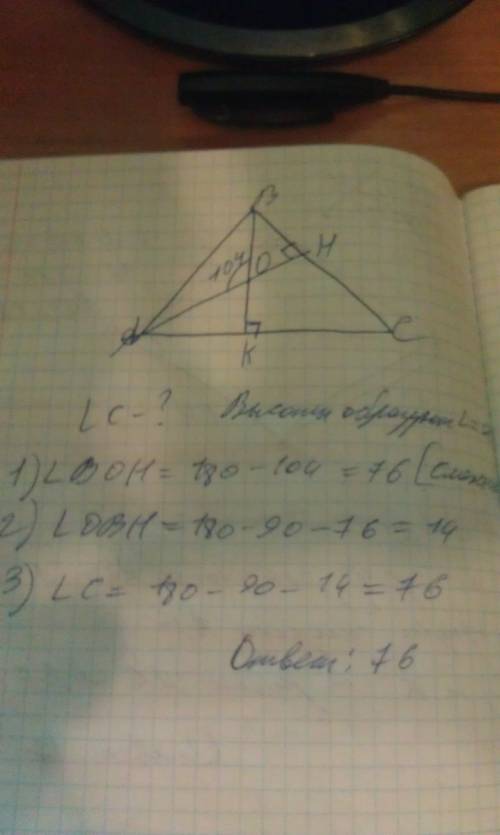 B
104
O
H
A
K
C
∠C-? Высоты образуют
1) ∠BOH = 180-104 = 76 [
2) ∠OBH = 180-90-76 = 14
3) ∠C = 180-90-14 = 76
Ответ: 76